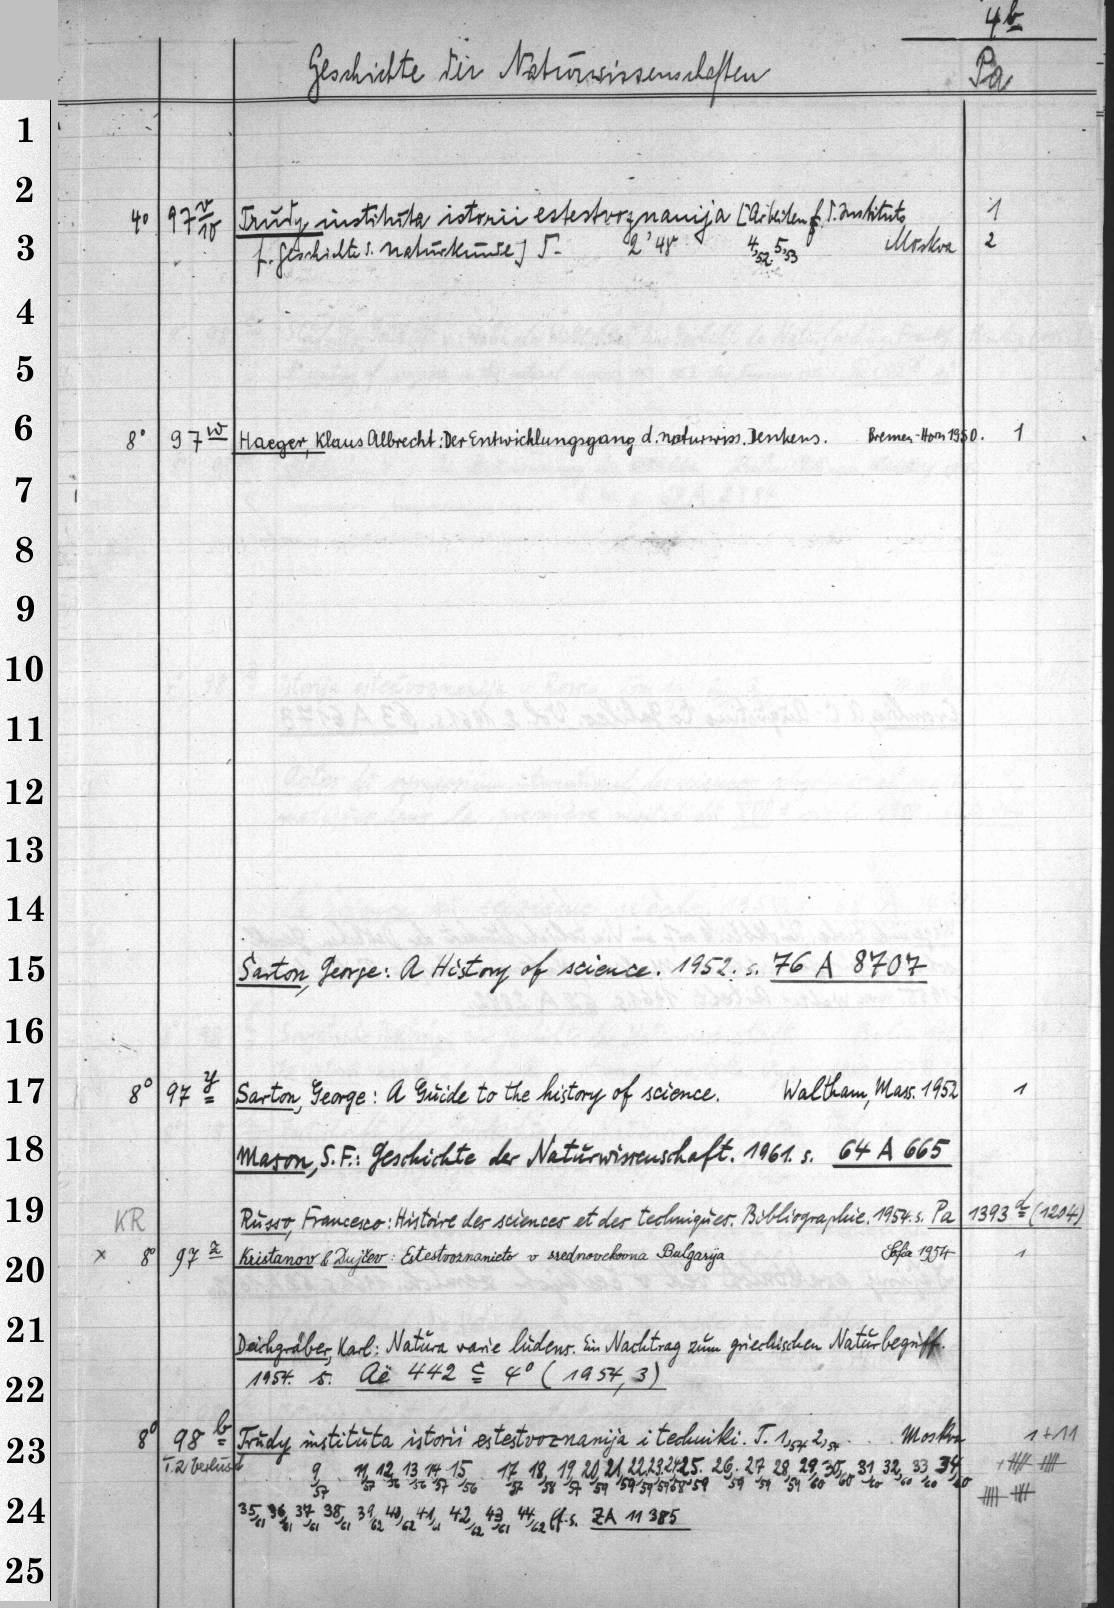 4b
Geschichte der Naturwissenschaften Pa
1
2
4° 97 v/10 Trudy instituta istorii estestvoznanija [Arbeiten f. d. Instituts 1
3 f. Geschichte d. Naturkunde] T. 2, 48 4,52 5,53 Moskva 2
4
5
6 8° 97 w Haeger, Klaus Albrecht: Der Entwicklungsgang d. naturwiss. Denkens. Bremen-Horn 1950. 1
7
8
9
10
11
12
13
14
15 Sarton, George: A History of science. 1952. s. 76 A 8707
16
17 8° 97 y Sarton, George: A Guide to the history of science. Waltham, Mass. 1952 1
18 Mason, S.F.: Geschichte der Naturwissenschaft. 1961. s. 64 A 665
19 KR Russo, Francesco: Histoire des sciences et des techniques. Bibliographie. 1954. s. Pa 1393 d (1204)
20 x 8° 97 z Kristanov & Dujčev: Estestvoznanieto v srednovekovna Bulgarija Sofia 1954 1
21 Deichgräber, Karl: Natura varie ludens. Ein Nachtrag zum griechischen Naturbegriff.
22 1954. s. Aë 442 c 4° (1954,3)
23 8° 98 b Trudy instituta istorii estestvoznanija i techniki. T. 1,54 2,54 Moskva 1+11
T. 2 verlust 9,57 11,57 12,56 13,56 14,57 15,56 17,57 18,58 19,57 20,59 21,59 22,59 23,59 24,58 25,59 26,59 27,59 28,59 29,60 30,60 31,60 32,60 33,60 34,60
24 35,61 36,61 37,61 38,61 39,62 40,62 41,61 42,62 43,61 44,62 ff. s. ZA 11385
25